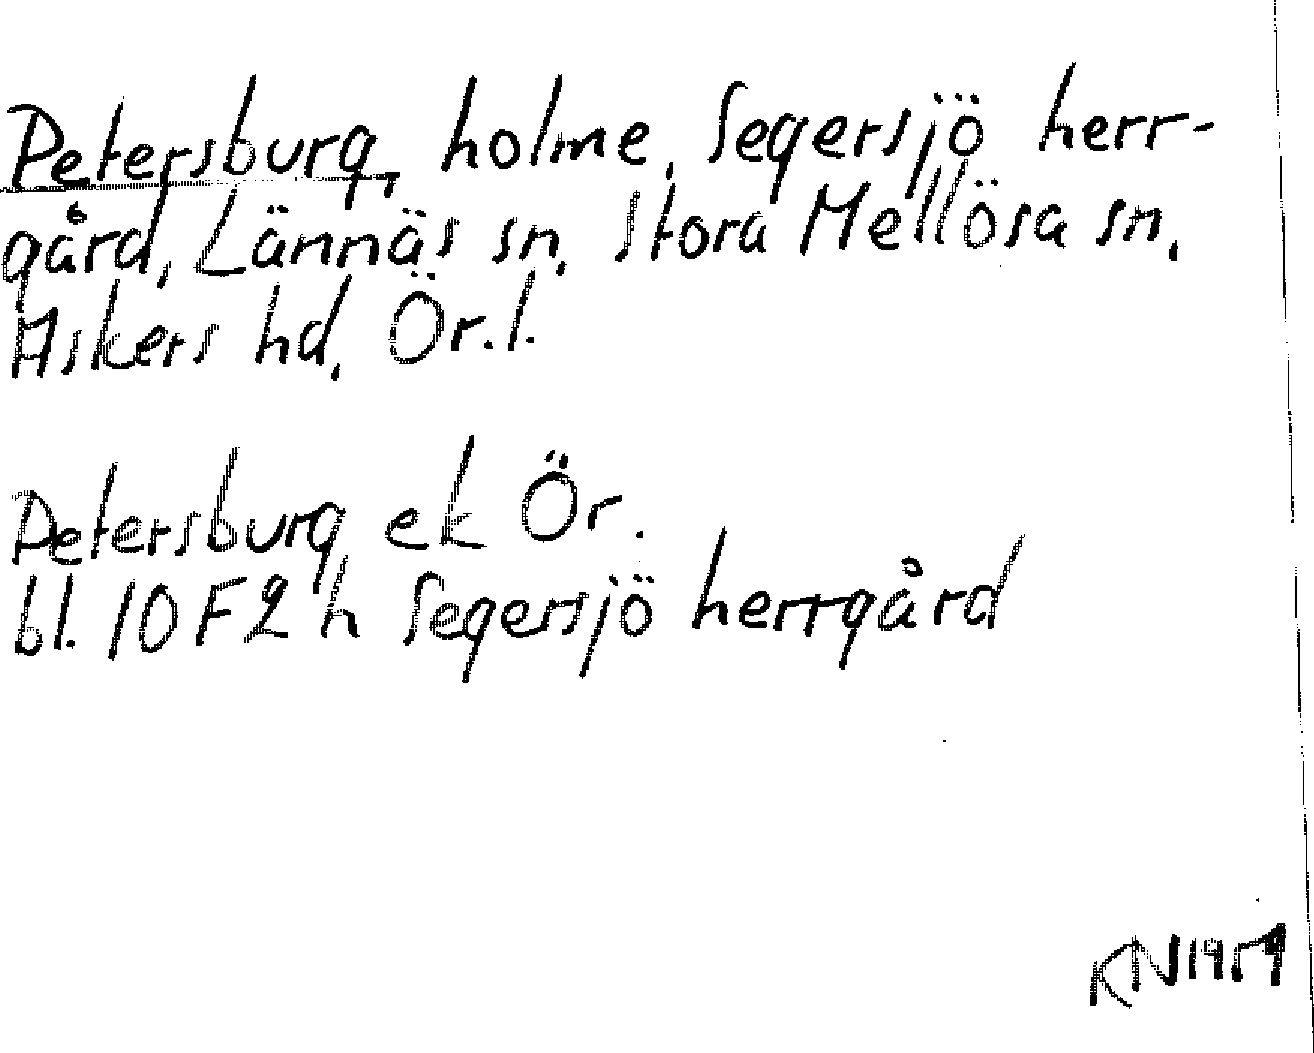 Petersburg, holme, Segersjö herr-
gård, Lännäs sn, Stora Mellösa sn,
Askers hd, Ör.l.
Petersburg ek Ör.
bl. 10F2h Segersjö herrgård
KN 1959